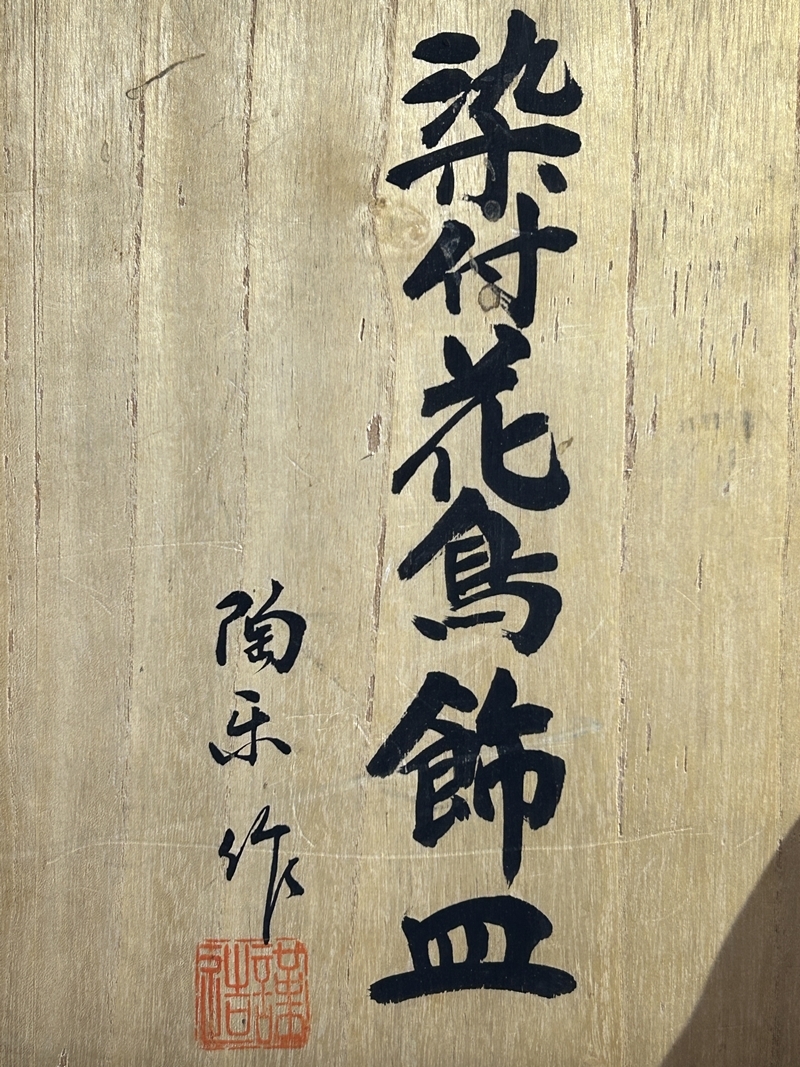 染付花鳥飾皿
陶楽作
謹造